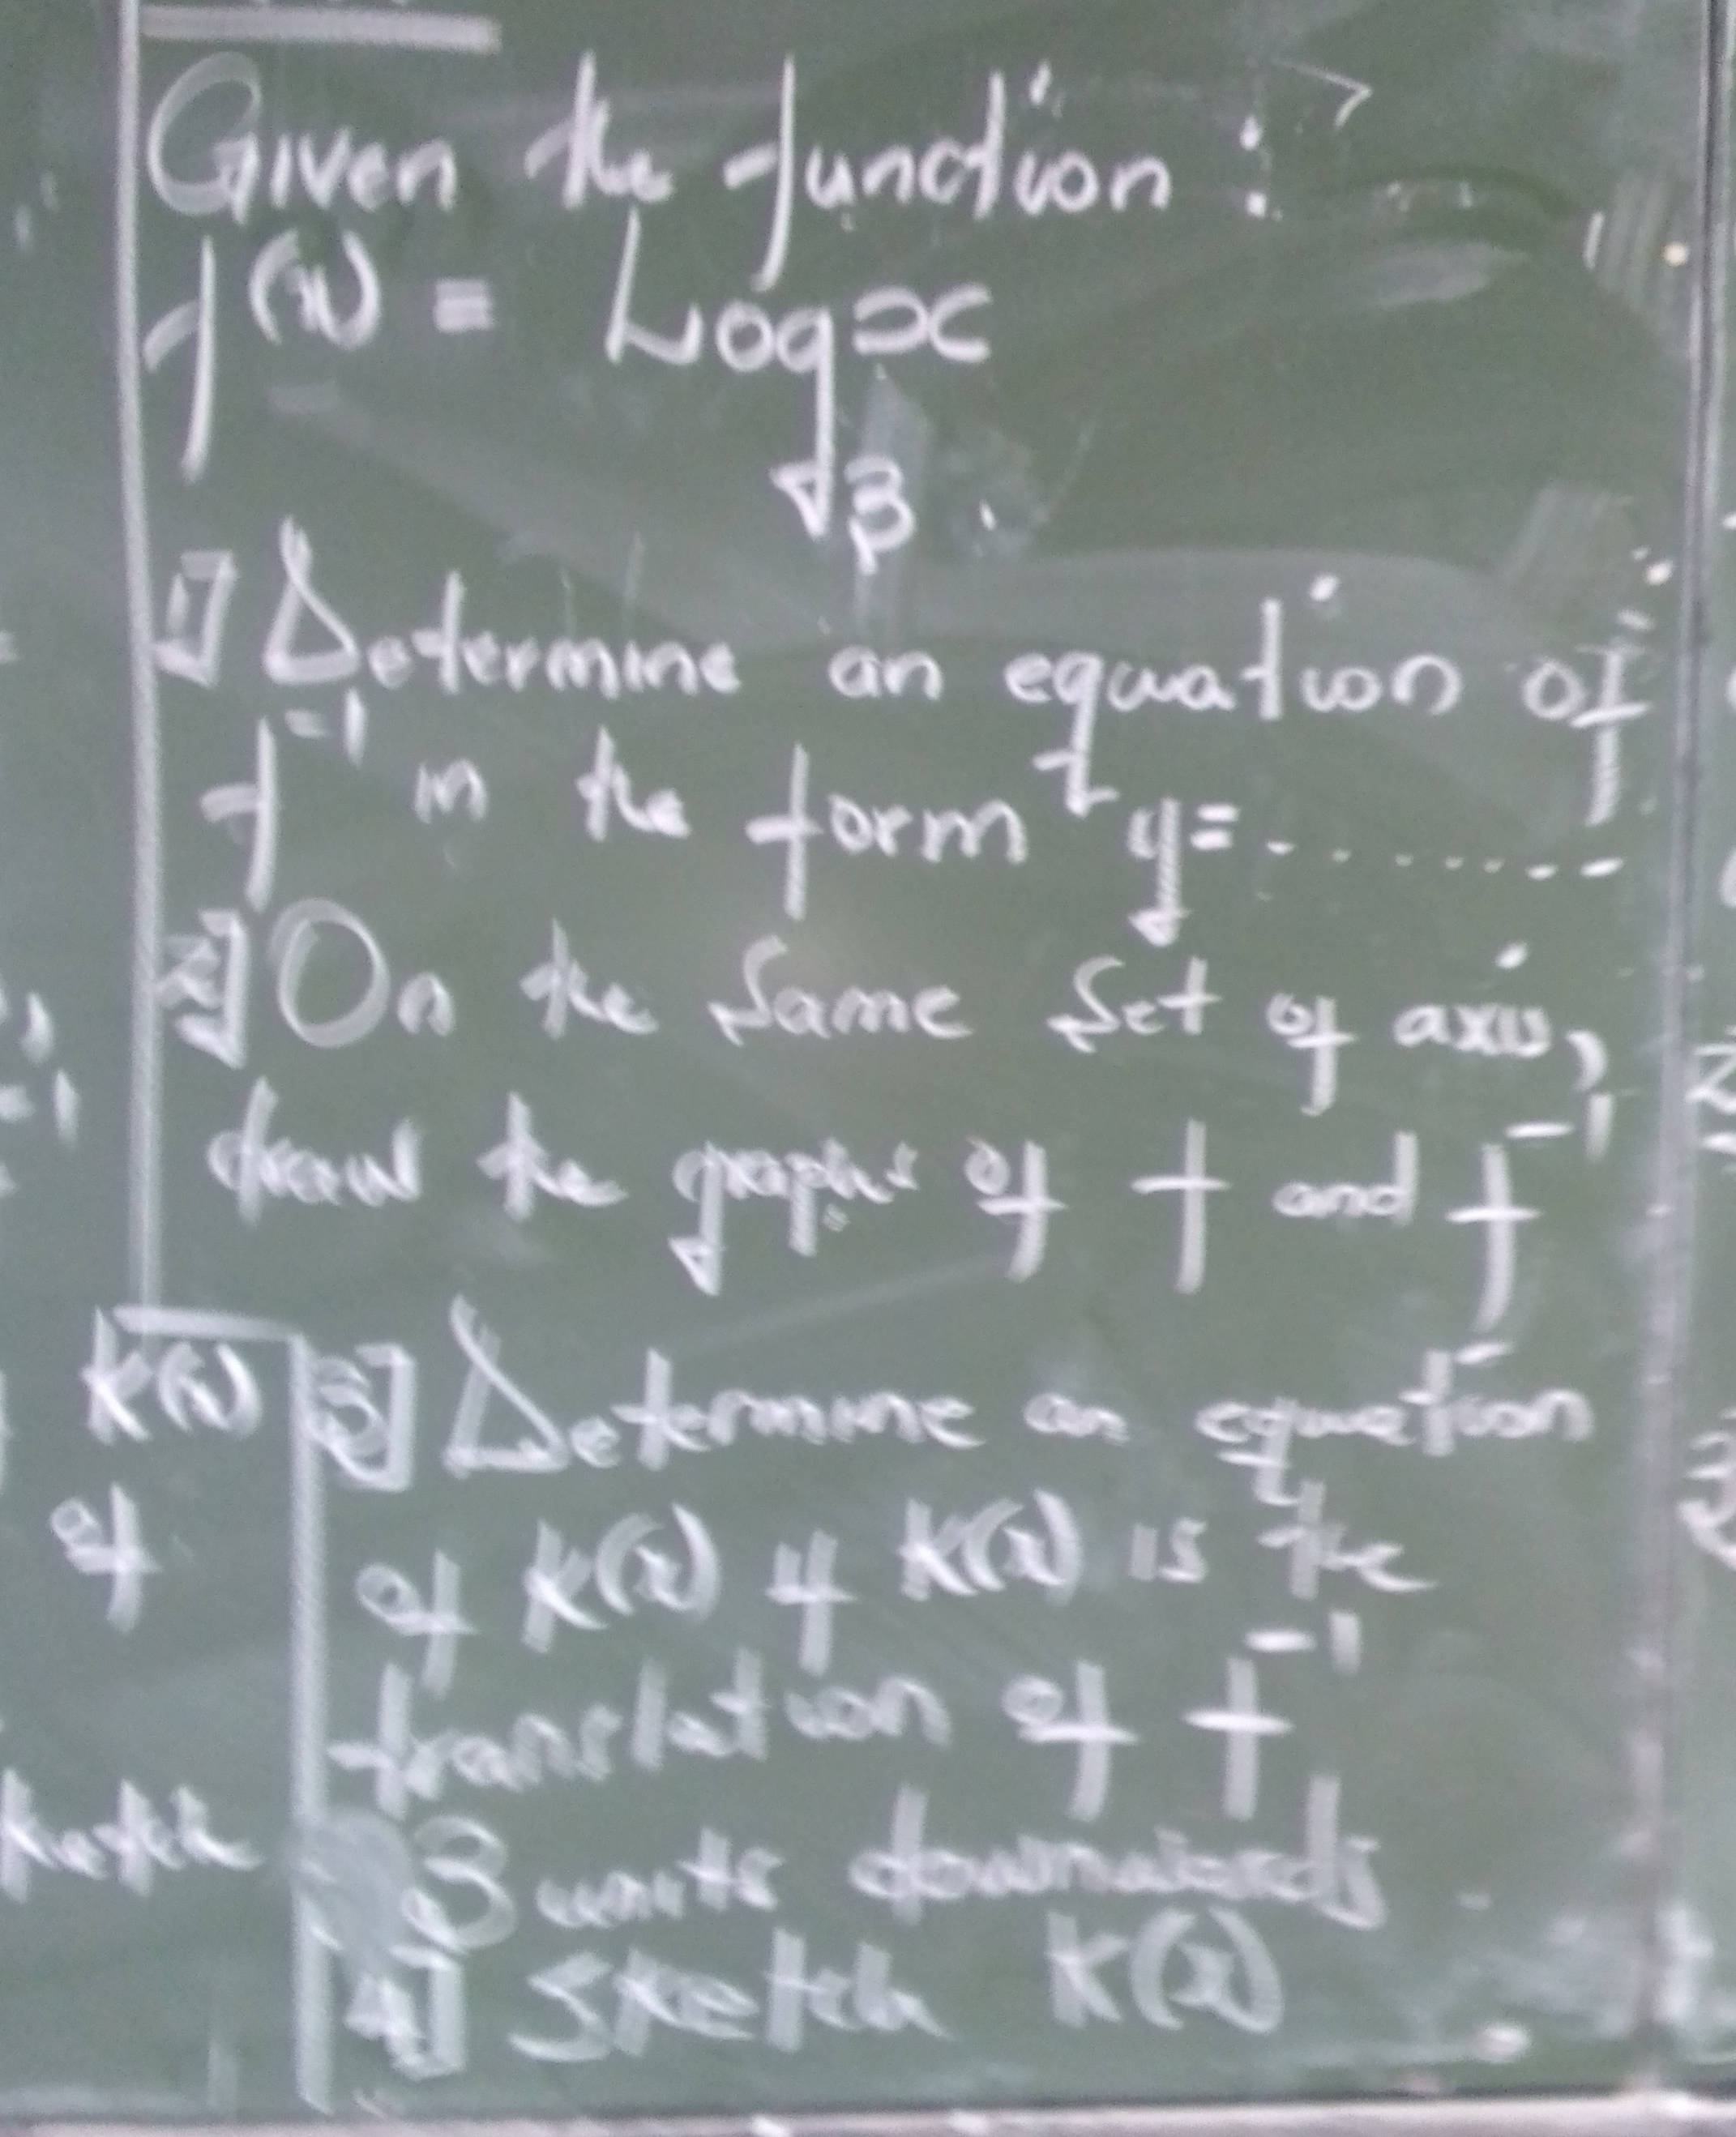 Given the function :
f(x) = Log x
3
1] Determine an equation of
f⁻¹ in the form y= ........
2] On the same set of axis,
draw the graphs of f and f⁻¹
K(x) 3] Determine an equation
of of K(x) if K(x) is the
translation of f⁻¹
3 units downwards
4] Sketch K(x)